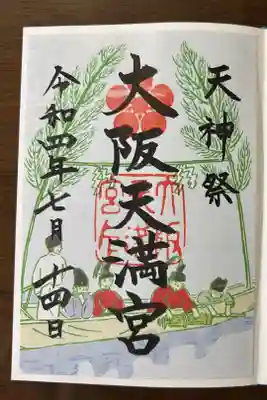 天神祭
大阪天満宮
令和四年七月廿四日